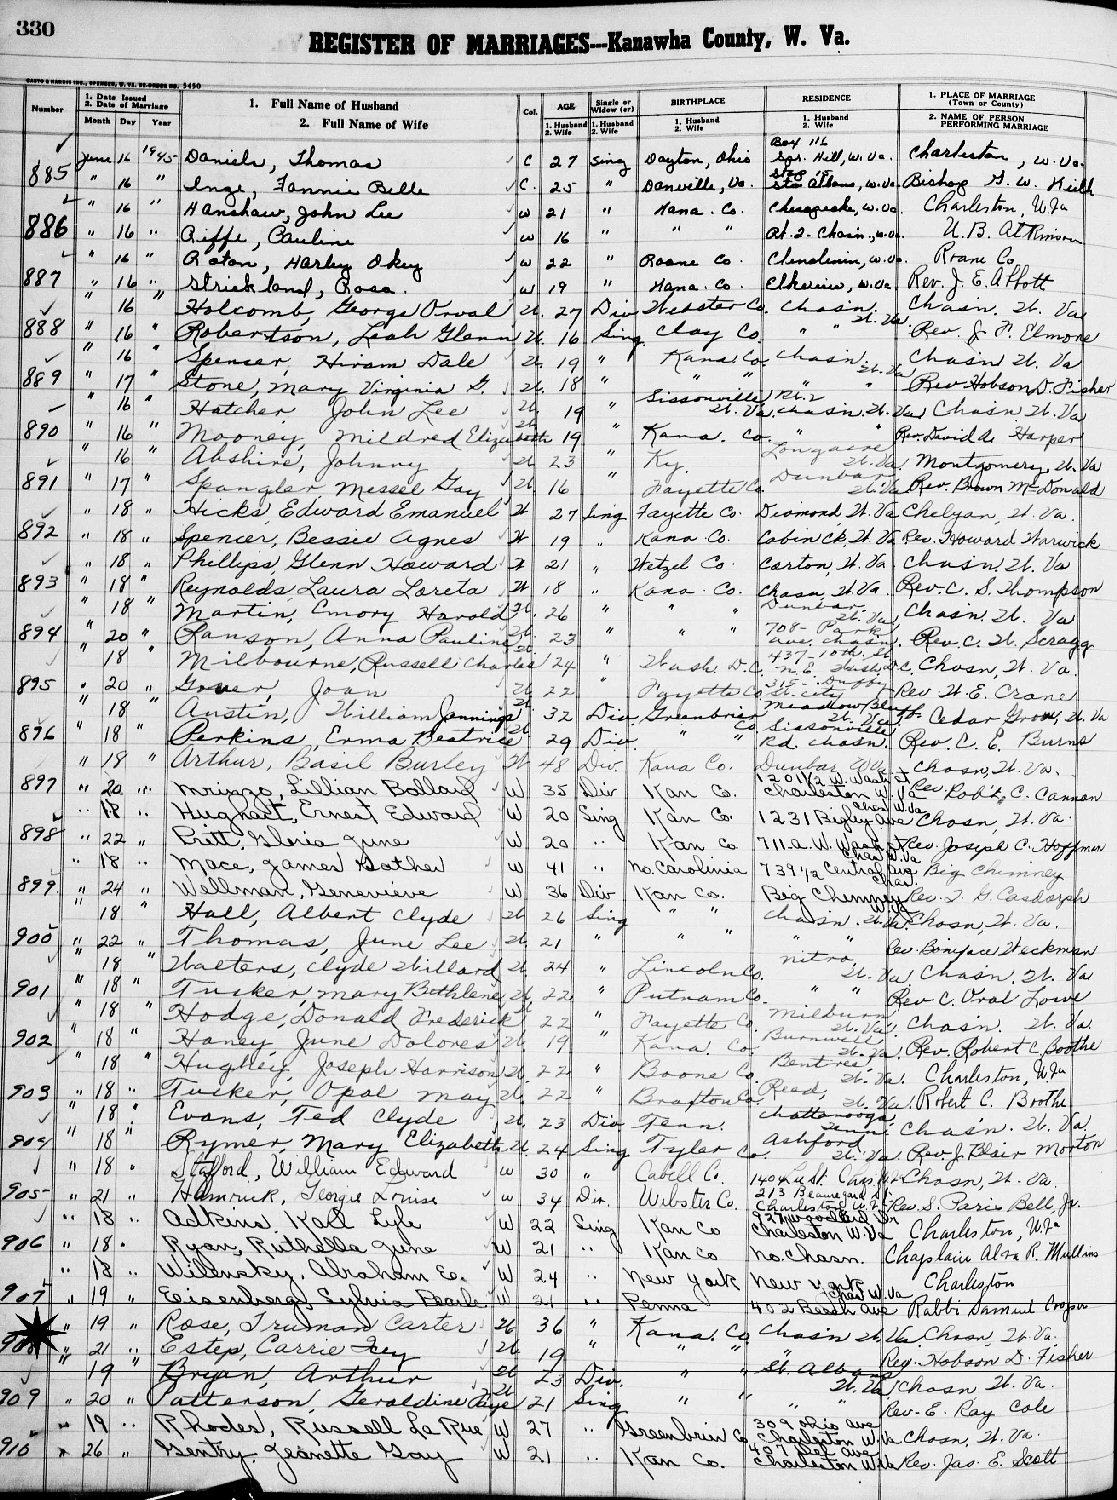 330
REGISTER OF MARRIAGES---Kanawha County, W. Va.
Number
1. Date Issued
2. Date of Marriage
Month Day Year
1. Full Name of Husband
2. Full Name of Wife
Col.
AGE
1. Husband
2. Wife
Single or
Widow (er)
1. Husband
2. Wife
BIRTHPLACE
1. Husband
2. Wife
RESIDENCE
1. Husband
2. Wife
1. PLACE OF MARRIAGE
(Town or County)
2. NAME OF PERSON
PERFORMING MARRIAGE
885 June 16 1945 Daniels, Thomas C 27 Sing Dayton, Ohio Box 116 Spr. Hill, W. Va. Charleston, W. Va.
" 16 " Inge, Fannie Belle C. 25 " Danville, Va. St. Albans, W. Va. Bishop G. W. Keith
886 " 16 " Hanshaw, John Lee W 21 " Kana. Co. Chesapeake, W. Va. Charleston, W Va
" 16 " Riffe, Pauline W 16 " " " Rt. 2- Chasn., W. Va. U. B. Atkinson
887 " 16 " Raton, Harley Okey W 22 " Roane Co. Clendenin, W. Va. Roane Co.
" 16 " Strickland, Rosa. W 19 " Kana. Co. Elkview, W. Va. Rev. J. E. Abbott
888 16 Holcomb, George Orval W. 27 Div Webster Co. Chasn. W. Va Chasn. W. Va
" 16 " Robertson, Leah Glenn W 16 Sing Clay Co. " " Rev. J. F. Elmore
889 " 16 Spencer, Hiram Dale W. 19 " Kana Co. Chasn. W. Va Chasn W. Va
" 17 " Stone, Mary Virginia G. W. 18 " " " " " Rev. Hobson D. Fisher
890 " 16 " Hatcher, John Lee W 19 " Sissonville W. Va. Rt. 2 Chasn. W. Va Chasn W. Va
" 16 " Mooney, Mildred Elizabeth W 19 " Kana. Co. " " Rev. David A. Harper
891 " 16 " Abshire, Johnny W 23 " Ky. Longacre W. Va. Montgomery, W. Va
" 17 " Spangler Messel Gay W. 16 " Fayette Co Dunbar W. Va Rev. Brown McDonald
892 " 18 " Hicks, Edward Emanuel W 27 Sing Fayette Co. Diamond, W. Va Chelyan, W. Va.
" 18 " Spencer, Bessie Agnes W 19 " Kana Co. Cabin Ck, W. Va Rev. Howard Warwick
893 " 18 " Phillips, Glenn Howard W 21 " Wetzel Co. Carton, W. Va Chasn. W. Va
" 18 " Reynolds, Laura Loreta W 18 " Kana. Co. Chasn, W. Va. Rev. C. S. Thompson
894 " 18 " Martin, Emory Harold W. 26 " " " Dunbar W. Va. Chasn. W. Va
" 20 " Ranson, Anna Pauline W. 23 " " " 708- Park Ave, Chasn. Rev. C. H. Scragg
895 " 18 " Milbourne, Russell Charles W 24 " Wash D.C. 437-10th St. N.E. Wash. D.C. Chasn, W. Va.
" 20 " Grover, Joan W 22 " Fayette Co 315- Duffy St. City Rev. W. E. Crane
896 " 18 " Austin, William Jennings W. 32 Div. Greenbrier Co Meadow Bluff W. Va Cedar Grove, W. Va
" 18 " Perkins, Erma Beatrice W 29 Div. " " Sissonville Rd. Chasn. Rev. C. E. Burns
897 " 18 " Arthur, Basil Burley W 48 Div. Kana Co. Dunbar, W Va Chasn, W. Va.
" 20 " Mrizzo, Lillian Ballard W 35 Div Kan Co. 1201½ W. Wash. St Charleston W. Va Rev Robt. C. Cannon
898 " 18 " Hughart, Ernest Edward W 20 Sing Kan Co. 1231 Bigley Ave Chas. W. Va Chasn, W. Va.
" 22 " Britt, Gloria June W 20 " Kan Co 711 a. W. Wash. St Chas W. Va Rev. Joseph C. Hoffman
899 " 18 " Mace, James Gather W 41 " No. Carolinia 739½ Central Ave Chas Big Chimney
" 24 " Wellman, Genevieve W 36 Div Kan Co. Big Chimney W. Va Rev. T. G. Casdorph
900 " 18 " Hall, Albert Clyde W 26 Sing " " Chasn. W. Va. Chasn, W. Va.
" 22 " Thomas, June Lee W. 21 " " " " " Rev. Boniface Weckman
901 " 18 Walters, Clyde Willard W. 24 " Lincoln Co. Nitro, W. Va. Chasn. W. Va
" 18 " Tucker, Mary Bethlene W. 22 " Putnam Co. " " Rev C. Oral Lowe
902 " 18 " Hodge, Donald Frederick W 22 " Fayette Co. Milburn W. Va. Chasn. W. Va.
" 18 " Haney, June Dolores W. 19 " Kana. Co. Burnwell W. Va. Rev. Robert C. Boothe
903 " 18 " Hughey, Joseph Harrison W. 22 " Boone Co. Bentree, W. Va. Charleston, W Va
" 18 " Tucker, Opal May W 22 " Braxton Co. Read, W. Va. Robert C. Boothe
904 " 18 " Evans, Ted Clyde W. 23 Div. Tenn. Chattanooga, Tenn. Chasn. W. Va.
" 18 " Rymer, Mary Elizabeth W 24 Sing Tyler Co. Ashford W. Va. Rev. J. Blair Morton
905 " 18 " Stafford, William Edward W 30 " Cabell Co. Chasn, W. Va.
" 21 " Hamrick, Georgie Louise W 34 Div. Webster Co. 213 Beauregard St. Charleston W. Va Rev. S. Paris Bell, Jr.
906 " 18 " Adkins, Karl Lyle W 22 Sing Kan Co Woodland Dr Charleston W. Va Charleston, W Va
" 18 " Ryan, Ruthella June W 21 " Kan Co No. Chasn. Chaplain Alva R. Mullins
907 " 18 " Wilensky, Abraham E. W 24 " New York New York Charleston
" 19 " Eisenberg, Sylvia Pearle W 21 " Penna 402 Beech Ave Chas W. Va Rabbi Samuel Cooper
908 " 19 " Rose, Truman Carter W 36 " Kana. Co. Chasn W. Va Chasn, W. Va.
" 21 " Estep, Carrie Fey W. 19 " " " " " Rev. Hobson D. Fisher
909 19 " Bryan, Arthur W 23 Div. " " St. Albans W. Va Chasn W. Va.
" 20 " Patterson, Geraldine Faye W 21 Sing " " " " Rev. E. Ray Cole
910 " 19 " Rhodes, Russell La Rue W 27 " Greenbrier Co 309 Ohio Ave Charleston W. Va Chasn, W. Va.
" 26 " Gentry, Jeanette Gay W 21 " Kan Co. 407 Del Ave Charleston W. Va Rev. Jas. E. Scott